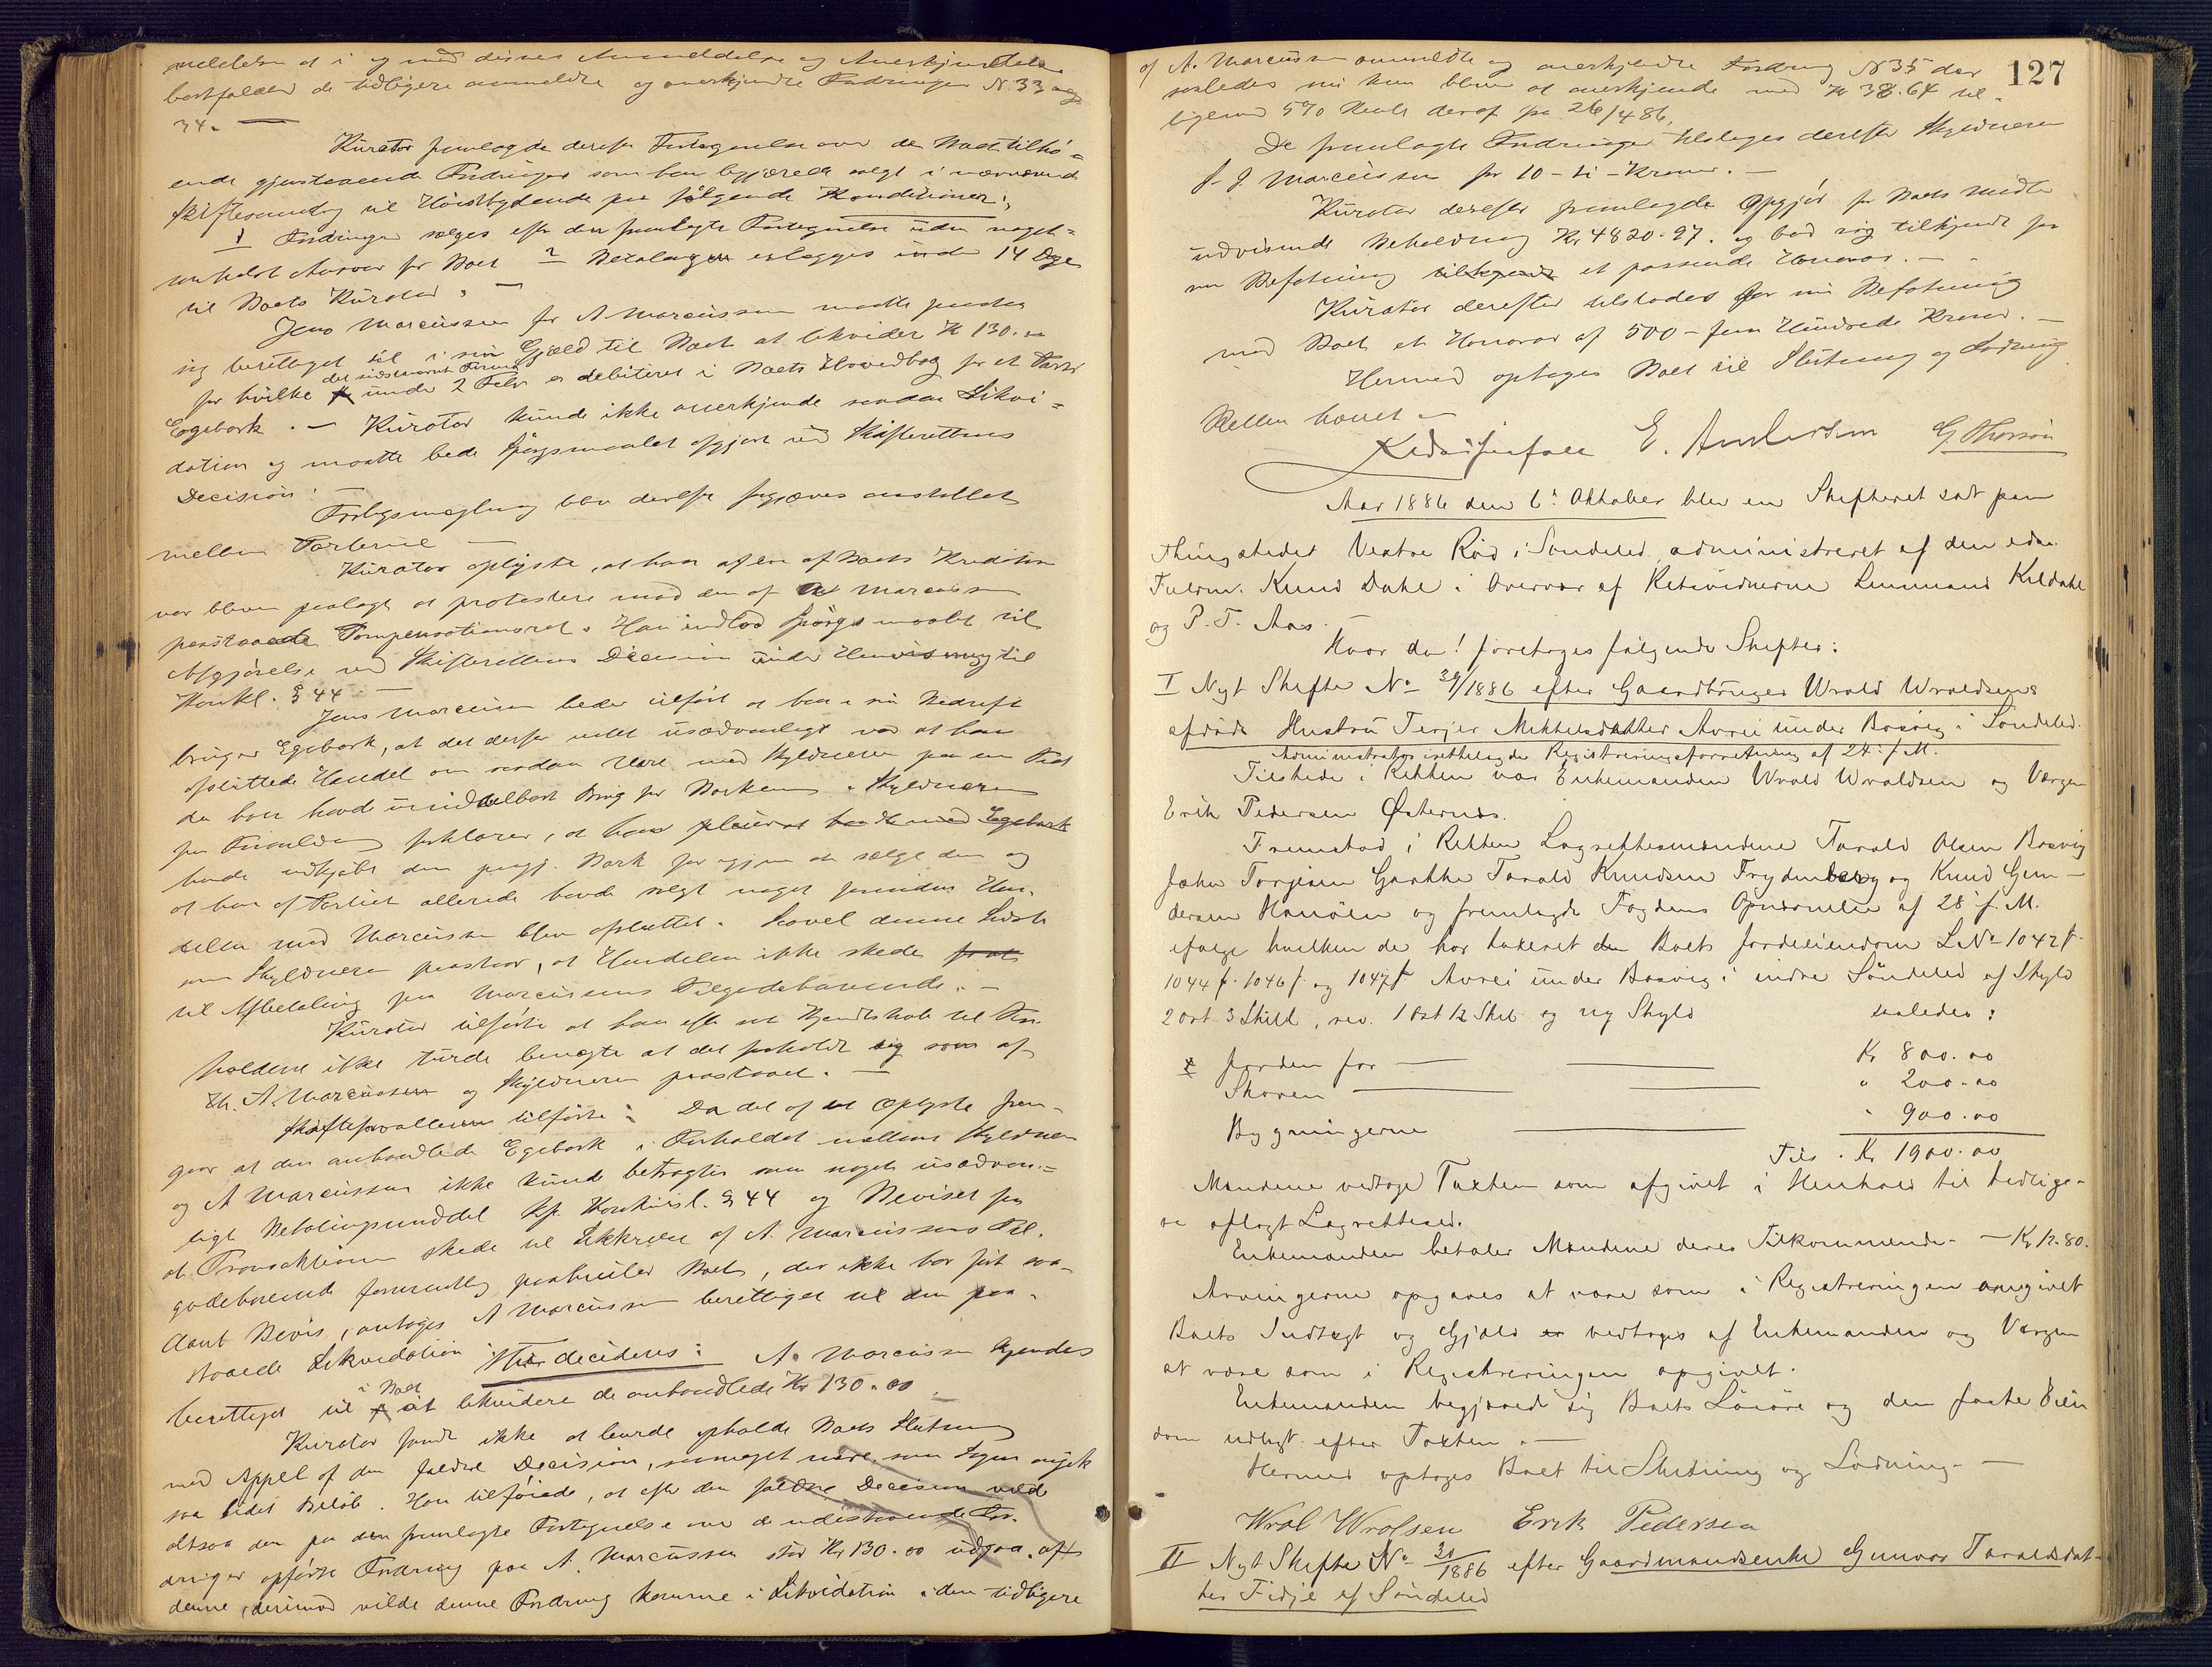 meldelse at i og med dennes Anmeldelse og Anerkjendelse
bortfalder de tidligere anmeldte og anerkjendte Fordringer N. 33 og
34. —
Kurator fremlagde derefter Fortegnelse over de Boet tilhø=
ende gjenstaaende Fordringer som han begjærede solgt i nærværende
Skiftesamling til Høistbydende paa følgende Konditioner:
1 Fordringer sælges efter den fremlagte Fortegnelse uden noget=
somhelst Ansvar for Boet 2 Betalingen erlægges inden 14 Dage
til Boets Kurator. —
Jens Marcussen for A Marcussen maatte paastaa
sig berettiget til i sin Gjæld til Boet at likvidere Kr 130.00
det sidstnævnte Firma
for hvilke under 2 Febr er debiteret i Boets Hovedbog for et Parti
Egebark. — Kurator kunde ikke anerkjende saadan Likvi=
dation og maatte bede Spørgsmaalet afgjort ved Skifterettens
Decision. —
Forligsmægling blev derefter forgjæves anstillet
mellem Parterne —
Kurator oplyste, at han af en af Boets Kreditorer
var bleven paalagt at protestere mod den af A Marcussen
paastaaede Kompensationsret. Han indlod Spørgsmaalet til
Afgjørelse ved Skifterettens Decision under Henvisning til
Konkl. § 44 —
Jens Marcussen beder tilført at han i sin Bedrift
bruger Egebark, at det derfor intet usædvanligt var at han
afsluttede Handel om saadan Vare med Skyldneren paa en Tid
da han havde umiddelbart Brug for Barken. Skyldneren
paa Anmeldning forklarer, at han pleiende handle med Egebark
havde indkjøbt den paagj. Bark for igjen at sælge den og
at han af Partiet allerede havde solgt noget forinden Han-
delen med Marcussen blev afsluttet. Saavel denne Sidste
som Skyldneren paastaar, at Handelen ikke skede
til Afbetaling paa Marcussens Tilgodehavende. —
Kurator tilførte at han efter sit Kjendskab til For-
holdene ikke turde benægte at det forholdt sig som af
Hr. A. Marcussen og Skyldneren paastaaet. —
Skifteforvalteren tilførte: Da det af det Oplyste frem-
gaar at den omhandlede Egebark i Forholdet mellem Skyldneren
og A Marcussen ikke kunde betragtes som noget usædvan=
ligt Betalingsmiddel kfr. Konkursl. § 44 og Beviset for
at Transaktionen skede til Sikkrelse af A. Marcussens Til-
godehavende formentlig paahviler Boet, der ikke har ført saa-
dant Bevis, antages A Marcussen berettiget til den paa-
staaede Likvidation Thi decideres: A. Marcussen kjendes
i Boet
berettiget til at likvidere de omhandlede Kr 130.00
Kurator fandt ikke at burde opholde Boets Slutning
med Appel af den faldne Decision, saameget mere som Sagen angik
saa lidet Beløb. Han tilføiede, at efter den faldne Decision vilde
altsaa den paa den fremlagte Fortegnelse over de udestaaende For-
dringer opførte Fordring paa A. Marcussen stor Kr 130.00 udgaa af
denne, derimod vilde denne Fordring komme i Likvidation i den tidligere
127
af A. Marcussen anmeldte og anerkjendte Fordring N 35 der
saaledes nu kun bliver at anerkjende med Kr 38.64 til-
ligemed 5% Rente deraf fra 26/4 86.
De fremlagte Fordringer tilsloges derefter Skyldneren
J. J. Marcussen for 10 - ti - Kroner. —
Kurator derefter fremlagde Opgjør for Boets Midler
udvisende Beholdning Kr. 4820.97. og bad sig tilkjendt for
sin Befatning et passende Honorar. —
Kurator derefter tilstodes for sin Befatning
med Boet et Honorar af 500 - fem Hundrede Kroner. —
Hermed optoges Boet til Slutning og Lodning
Retten hævet —
E. Andersen G Thorsen
Aar 1886 den 6. Oktober blev en Skifteret sat paa
Thingstedet Vestre Röd i Söndeled administreret af den edsv.
Fuldm. Knud Dahl i Overvær af Retsvidnerne Lensmand Kildahl
og P. T. Aas.
Hvor da! foretoges fölgende Skifter:
I Nyt Skifte No 29/1886 efter Gaardbruger Wrold Wroldsens
afdöde Hustru Terjer Mikkelsdatter Avrei under Bosvig i Söndeled.
Administrator irettelagde Registreringsforretning af 24. f. M.
Tilstede i Retten var Enkemanden Wrold Wroldsen og Værgen
Erik Pedersen Østernes.
Fremstod i Retten Lagrettesmændene Tarald Olsen Bosvig
John Torgersen Garthe Tarald Knudsen Frydenberg og Knud Gun—
dersen Hansöen og fremlagde Fogdens Opnævnelse af 28 f. M.
ifölge hvilken de har taxeret Boets Jordeiendom LNo 1042 f.
1044 f. 1046 f. og 1047 f Avrei under Bosvig i indre Söndeled af Skyld
2 ort 3 Skill, rev. 1 ort 12 Skil og ny Skyld saaledes:
Jorden for — — Kr 800.00
Skoven — — " 200.00
Bygningerne — " 900.00
Tils. Kr 1900.00
Mændene vedtoge Taxten som afgivet i Henhold til tidlige-
re aflagt Lagrettesed.
Enkemanden betaler Mændene deres Tilkommende — Kr 12.80.
Arvingerne opgaves at være som i Registreringen angivet
Boets Indtægt og Gjæld vedtoges af Enkemanden og Værgen
at være som i Registreringen opgivet.
Enkemanden begjærede sig Boets Lösöre og den faste Eien
dom udlagt efter Taxten. —
Hermed optoges Boet til Slutning og Lodning. —
Wrol Wrolsen Erik Pedersen
II Nyt Skifte No 30/1886 efter Gaardmandsenke Gunvor Taraldsdat-
ter Fidje af Söndeled